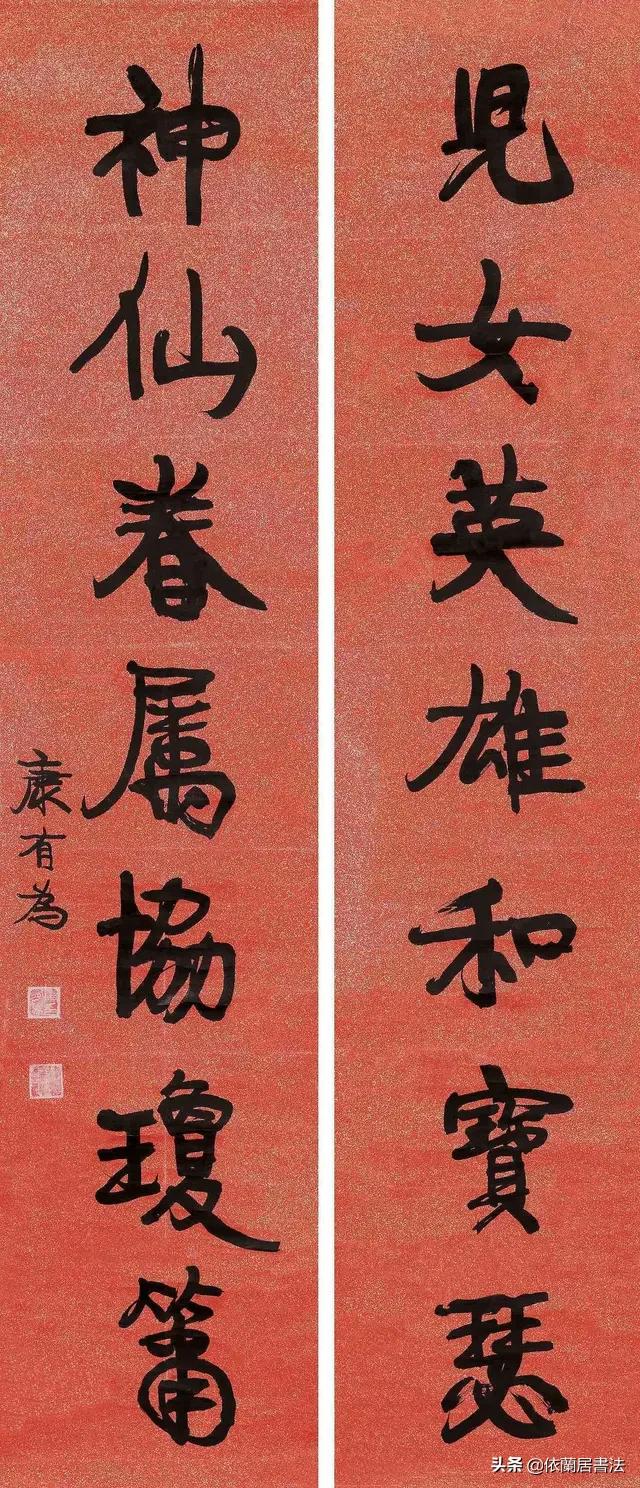 兒女英雄和寶瑟
神仙眷属協瓊簫
康有為
头条 @依蘭居書法